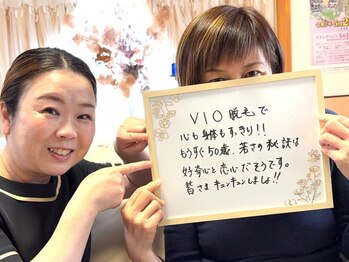 VIO脱毛で
心も身体もすっきり!!
もうすぐ50歳、若さの秘訣は
好奇心と恋心だそうです。
皆さまキュンキュンしましょ!!